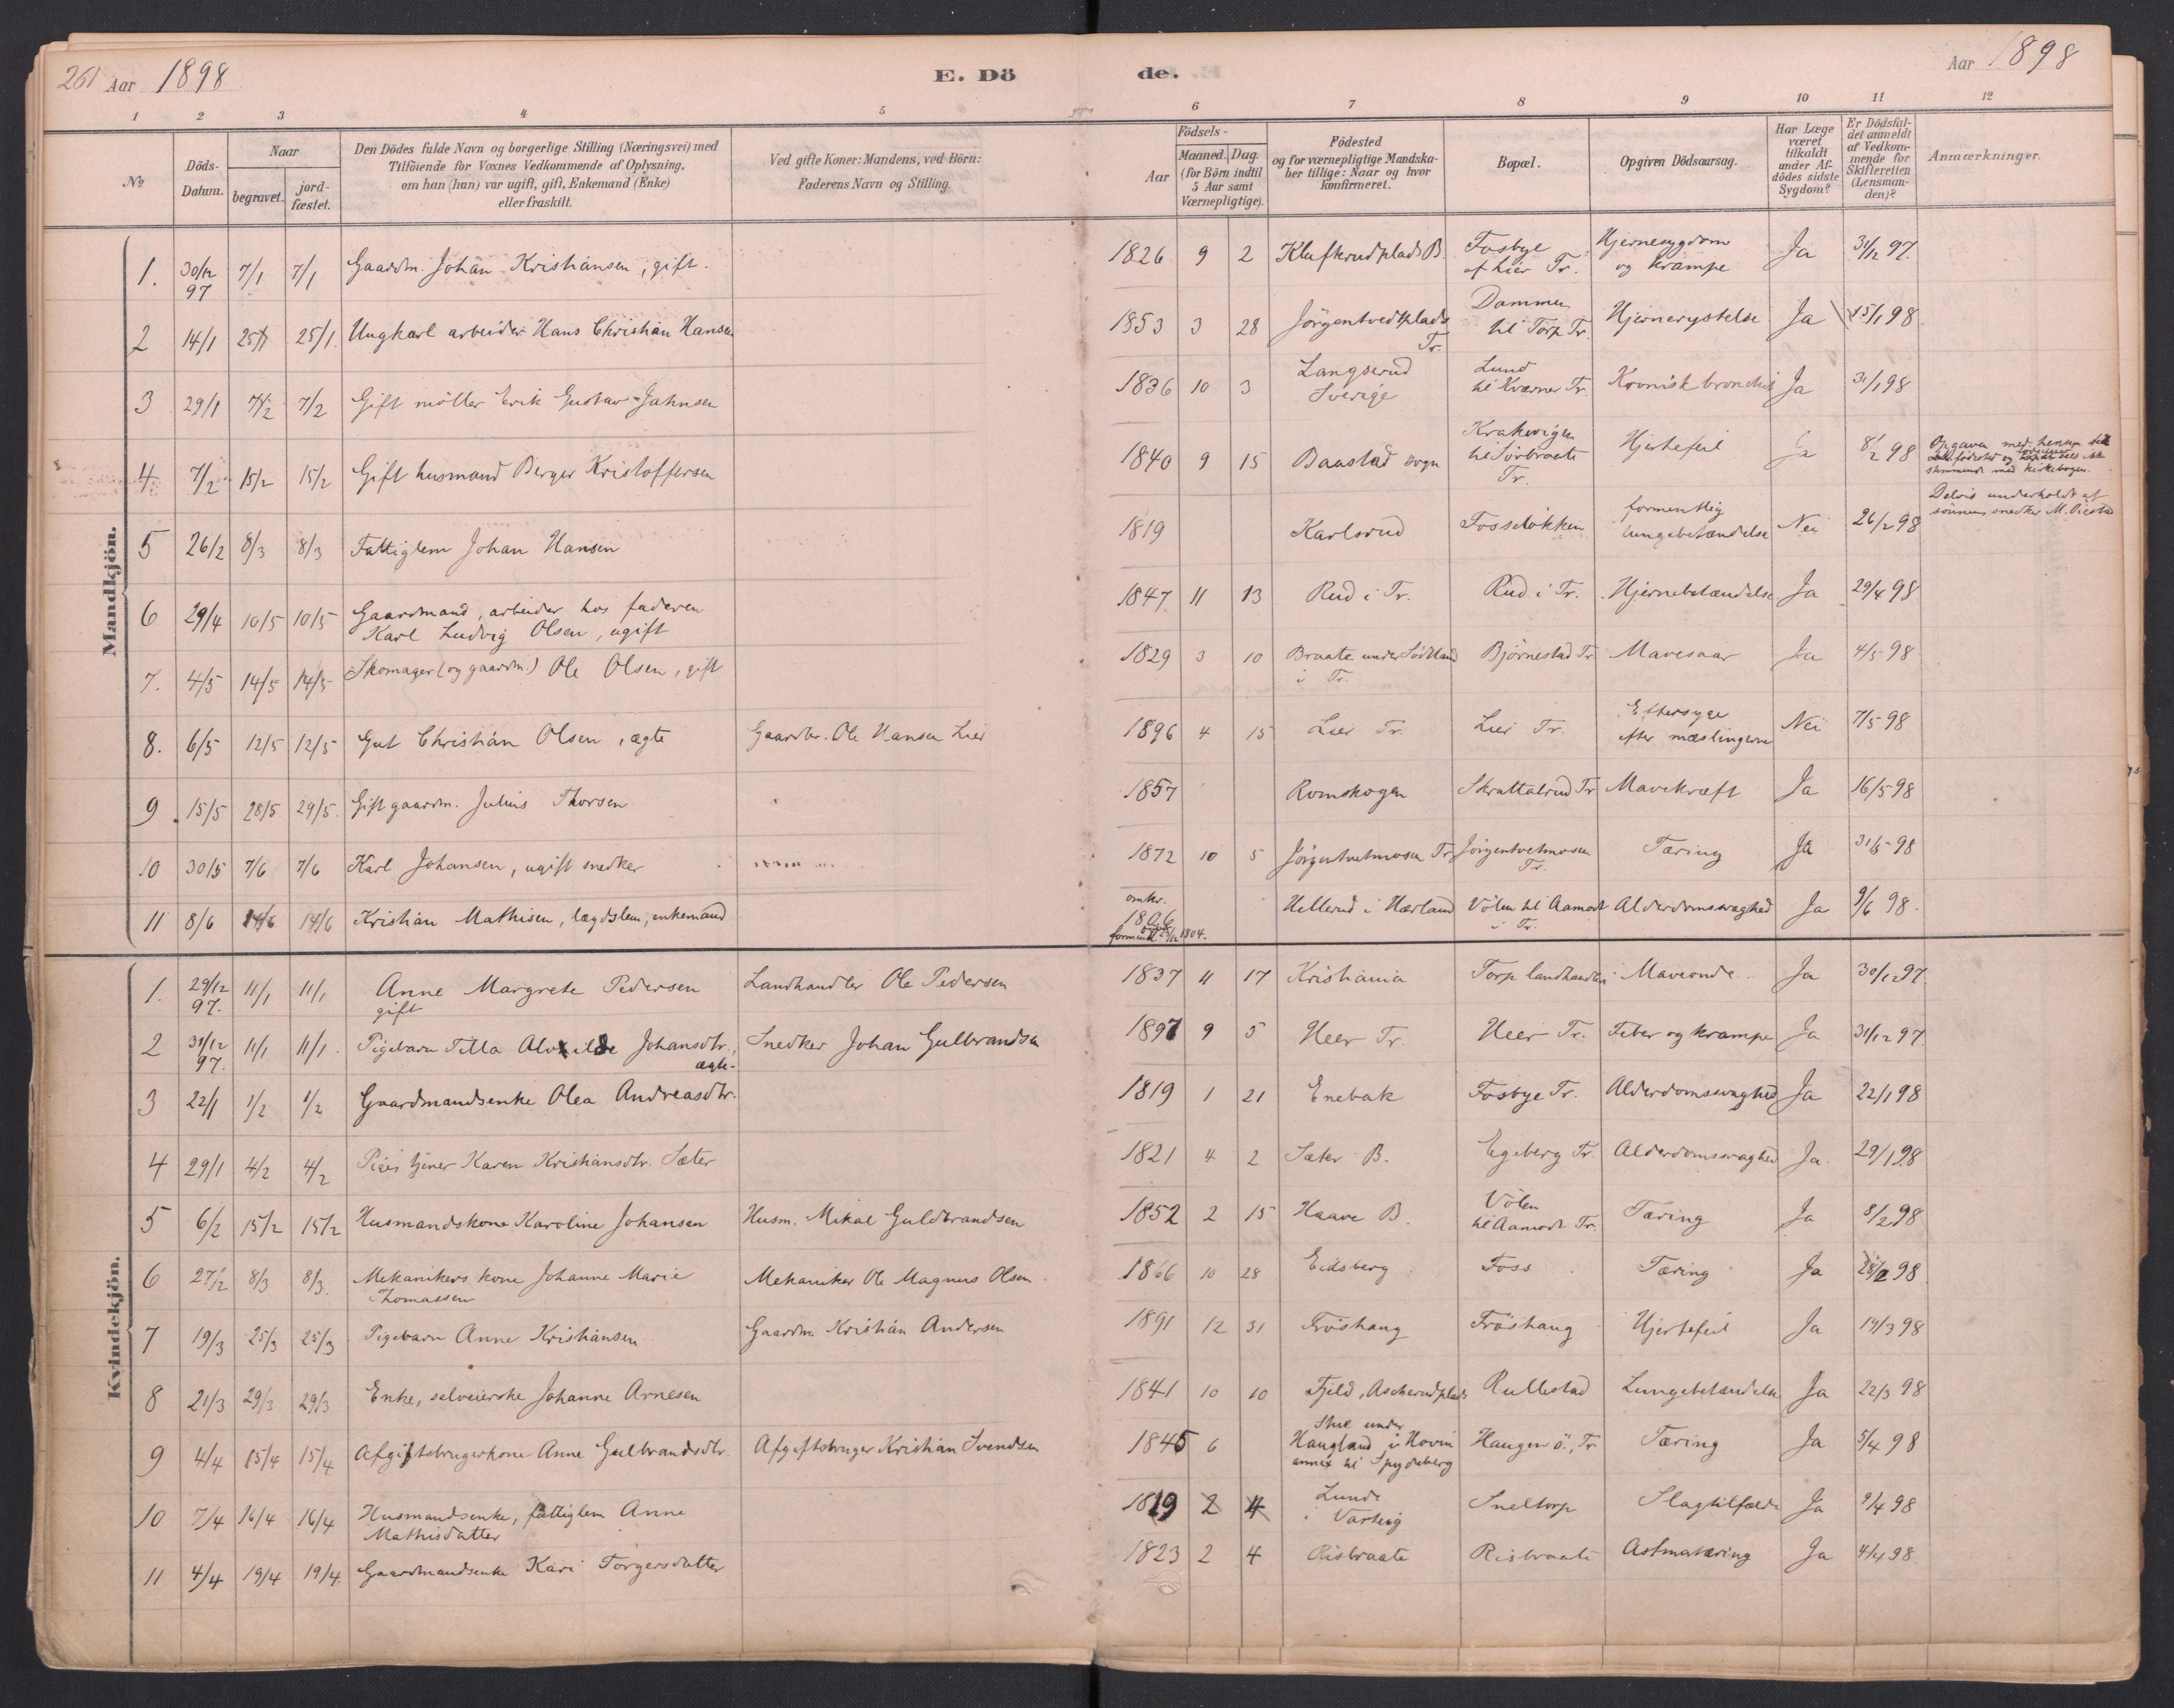 261 Aar 1898
E. Dö
de.
Aar 1898
1 2 3 4 5 6 7 8 9 10 11 12
No
Döds-Datum.
Naar
begravet.
jord-fæstet.
Den Dödes fulde Navn og borgerlige Stilling (Næringsvei) med
Tilföiende for Voxnes Vedkommende af Oplysning,
om han (hun) var ugift, gift, Enkemand (Enke)
eller fraskilt.
Ved gifte Koner: Mandens, ved Börn:
Faderens Navn og Stilling.
Födsels-
Aar
Maaned. Dag.
(for Börn indtil
5 Aar samt
Værnepligtige).
Födested
og for værnepligtige Mandska-
ber tillige: Naar og hvor
konfirmeret.
Bopæl.
Opgiven Dödsaarsag.
Har Læge
været
tilkaldt
under Af-
dödes sidste
Sygdom?
Er Dödsfal-
det anmeldt
af Vedkom-
mende for
Skifteretten
(Lensman-
den)?
Anmærkninger.
Mandkjön.
1. 30/12 97 7/1 7/1 Gaardm. Johan Kristiansen, gift. 1826 9 2 Klufkrudplads B. Fosbye af Lier Tr. Hjernesygdom og krampe Ja 31/12 97.
2 14/1 25/1 25/1 Ungkarl arbeider Hans Christian Hansen 1853 3 28 Jörgentvedtplads Tr. Dammen til Torp Tr. Hjernerystelse Ja 15/1 98
3 29/1 7/2 7/2 Gift möller Erik Gustav Jahnsen 1836 10 3 Langserud Sverige Lund til Kværner Tr. Kronisk bronchit Ja 31/1 98
4 7/2 15/2 15/2 Gift husmand Berger Kristoffersen 1840 9 15 Baastad sogn Krakvigen til Sörbraate Tr. Hjertefeil Ja 8/2 98 Opgaven med hensyn til födested og stemmende med kirkebogen.
5 26/2 8/3 8/3 Fattiglem Johan Hansen 1819 Karlsrud Fosslökken formentlig lungebetændelse Nei 26/2 98 Delvis underholdt af sönnen snedker M.
6 29/4 10/5 10/5 Gaardmand, arbeider hos faderen Karl Ludvig Olsen, ugift 1847 11 13 Rud i Tr. Rud i Tr. Hjernebetændelse Ja 29/4 98
7. 4/5 14/5 14/5 Skomager (og gaardm.) Ole Olsen, gift 1829 3 10 Braate under Södland i Tr. Bjørnestad Tr. Mavesaar Ja 4/5 98
8. 6/5 12/5 12/5 Gut Christian Olsen, ægte Gaardbr. Ole Hansen Lier 1896 4 15 Lier Tr. Lier Tr. Eftersyge efter mæslingerne Nei 7/5 98
9 15/5 28/5 29/5. Gift gaardm. Julius Thorsen 1857 Romskogen Skrattalrud Tr Mavekræft Ja 16/5 98
10 30/5 7/6 7/6 Karl Johansen, ugift snedker 1872 10 5 Jörgentvetmosen Tr. Jörgentvetmosen Tr. Tæring Ja 31/5 98
11 8/6 14/6 14/6 Kristian Mathisen, lægdslem, enkemand omkr. 1806 1804. Hellerud i Hærland Völen til Aamodt i Tr. Alderdomssvaghed Ja 9/6 98.
Kvindekjön.
1. 29/12 97. 11/1 11/1 Anne Margrete Pedersen gift Landhandler Ole Pedersen 1837 11 17 Kristiania Torp landhandleri Maveonde Ja 30/12 97.
2 31/12 97. 11/1 11/1. Pigebarn Tilla Alvilde Johansdtr., ægte. Snedker Johan Gulbrandsen 1897 9 5 Heer Tr. Heer Tr. Feber og krampe Ja 31/12 97.
3 22/1 1/2 1/2 Gaardmandsenke Olea Andreasdtr. 1819 1 21 Enebak Fosbye Tr. Alderdomssvaghed Ja 22/1 98
4 29/1 4/2 4/2 Pige tjener Karen Kristiansdtr. Sæter 1821 4 2 Sæter B. Egeberg Tr. Alderdomssvaghed Ja 29/1 98
5 6/2 15/2 15/2 Husmandskone Karoline Johansen Husm. Mikal Guldbrandsen 1852 2 15 Haave B. Völen til Aamodt Tr. Tæring Ja 8/2 98
6 27/2 8/3 8/3. Mekanikers kone Johanne Marie Thomassen Mekaniker Ole Magnus Olsen 1866 10 28 Eidsberg Foss Tæring Ja 28/2 98
7 19/3 25/3 25/3 Pigebarn Anne Kristiansen Gaardm. Kristian Andersen 1891 12 31 Fröshaug Fröshaug Hjertefeil Ja 19/3 98
8 21/3 29/3 29/3 Enke, selveierske Johanne Arnesen 1841 10 10 Fjeld, Ascherudplads Rullestad Lungebetændelse Ja 22/3 98
9 4/4 15/4 15/4 Afgiftsbrugerkone Anne Gulbrandsdtr. Afgiftsbruger Kristian Svendsen 1845 6 Stue under Haugland i Hovin annex til Spydeberg Haugen ö., Tr. Tæring Ja 5/4 98
10 7/4 16/4 16/4 Husmandsenke, fattiglem Anne Mathisdatter 1819 2 4 Lunde i Varteig Sneltorp Slagtilfælde Ja 9/4 98
11 4/4 19/4 19/4. Gaardmandsenke Kari Torgersdatter 1823 2 4 Risbraate Risbraate Astmatæring Ja 4/4 98.